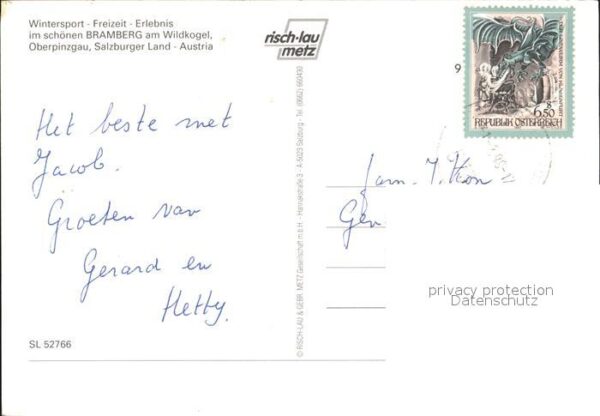 Wintersport - Freizeit - Erlebnis
im schönen BRAMBERG am Wildkogel,
Oberpinzgau, Salzburger Land - Austria
risch-lau
metz
9
6.50
REPUBLIK ÖSTERREICH
Het beste met
Jacob.
Groeten van
Gerard en
Hetty.
Fam.
Gen
privacy protection
Datenschutz
© RISCH-LAU & GEBR. METZ Gesellschaft m.b.H. - Hannakstraße 3 - A-5023 Salzburg - Tel. (0662) 660430
SL 52766